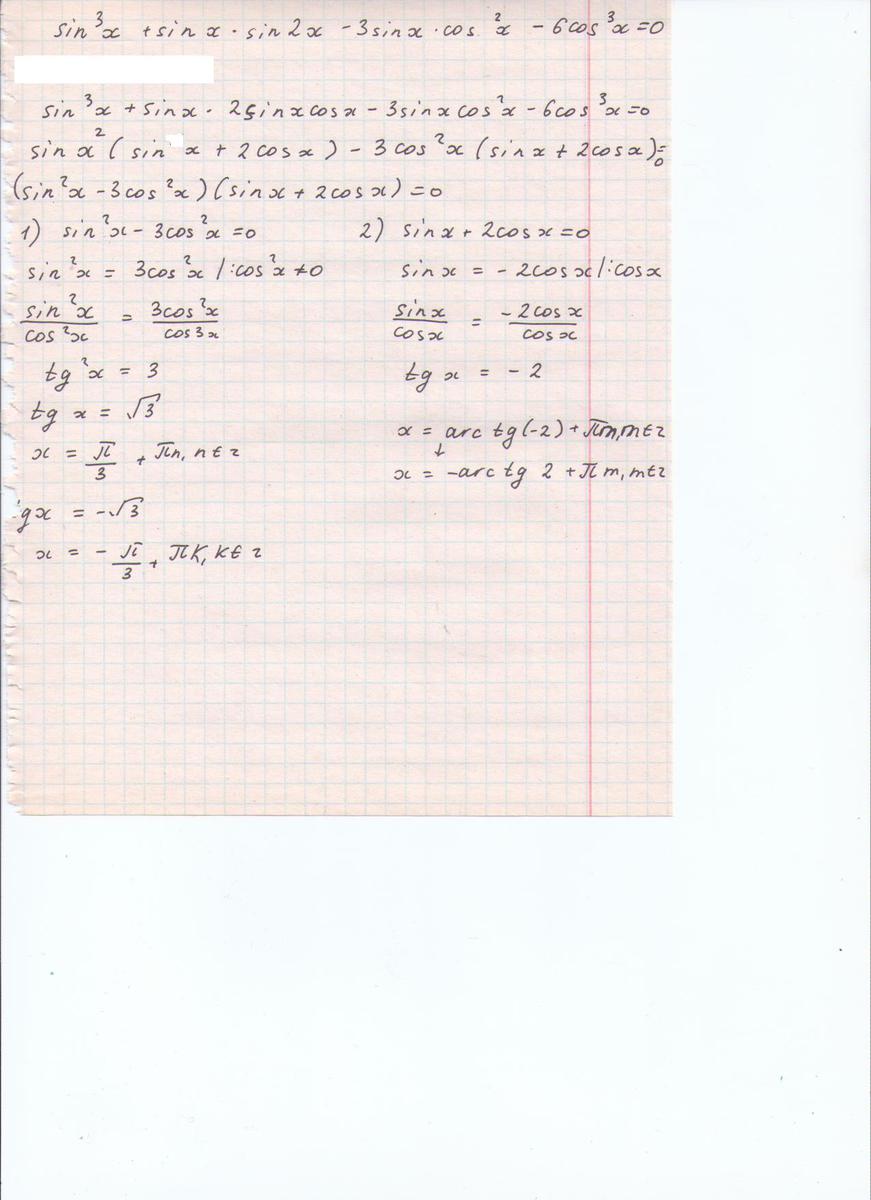 sin³x + sin x · sin 2x - 3 sin x · cos²x - 6cos³x = 0
sin³x + sin x · 2 sin x cos x - 3 sin x cos²x - 6cos³x = 0
sin x² ( sin x + 2 cos x ) - 3 cos²x ( sin x + 2cos x ) = 0
(sin²x - 3cos²x)(sin x + 2cos x) = 0
1) sin²x - 3cos²x = 0
sin²x = 3cos²x /:cos²x ≠ 0
sin²x/cos²x = 3cos²x/cos3x
tg²x = 3
tg x = √3
x = π/3 + πn, n ∈ z
gx = -√3
x = - π/3 + πk, k ∈ z
2) sin x + 2cos x = 0
sin x = - 2cos x /:cos x
sin x/cos x = -2cos x/cos x
tg x = - 2
x = arc tg(-2) + πm, m ∈ z
↓
x = -arc tg 2 + πm, m ∈ z